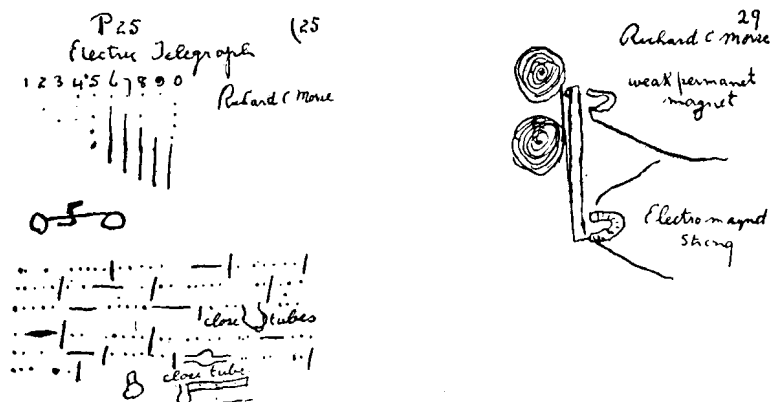 P 25
(25
Electric Telegraph
1 2 3 4 5 6 7 8 9 0
Richard C Morse
close tubes
close tube
29
Richard C Morse
weak permanet
magnet
Electromagnet
Strong